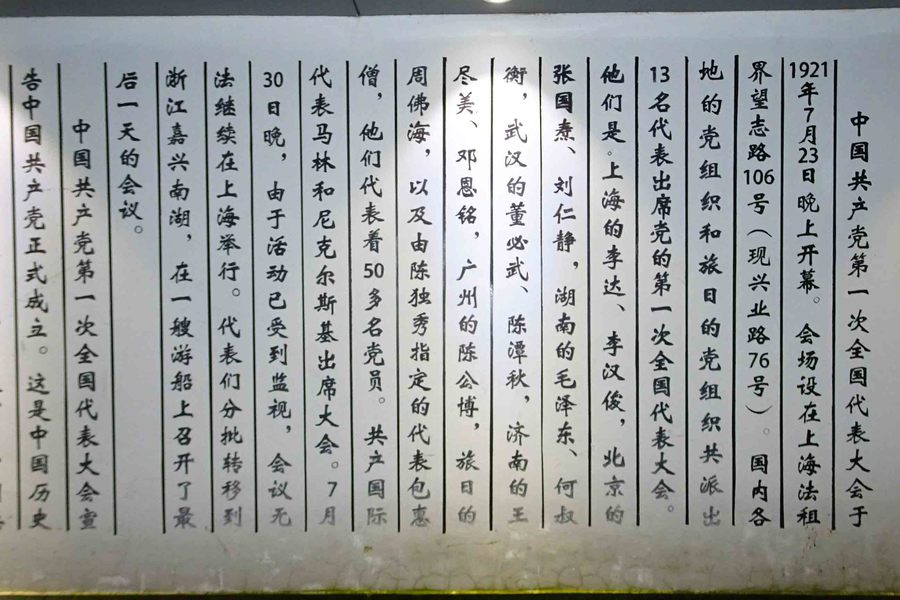 中国共产党第一次全国代表大会于
1921年7月23日晚上开幕。会场设在上海法租
界望志路106号（现兴业路76号）。国内各
地的党组织和旅日的党组织共派出
13名代表出席党的第一次全国代表大会。
他们是。上海的李达、李汉俊，北京的
张国焘、刘仁静，湖南的毛泽东、何叔
衡，武汉的董必武、陈潭秋，济南的王
尽美、邓恩铭，广州的陈公博，旅日的
周佛海，以及由陈独秀指定的代表包惠
僧，他们代表着50多名党员。共产国际
代表马林和尼克尔斯基出席大会。7月
30日晚，由于活动已受到监视，会议无
法继续在上海举行。代表们分批转移到
浙江嘉兴南湖，在一艘游船上召开了最
后一天的会议。
中国共产党第一次全国代表大会宣
告中国共产党正式成立。这是中国历史